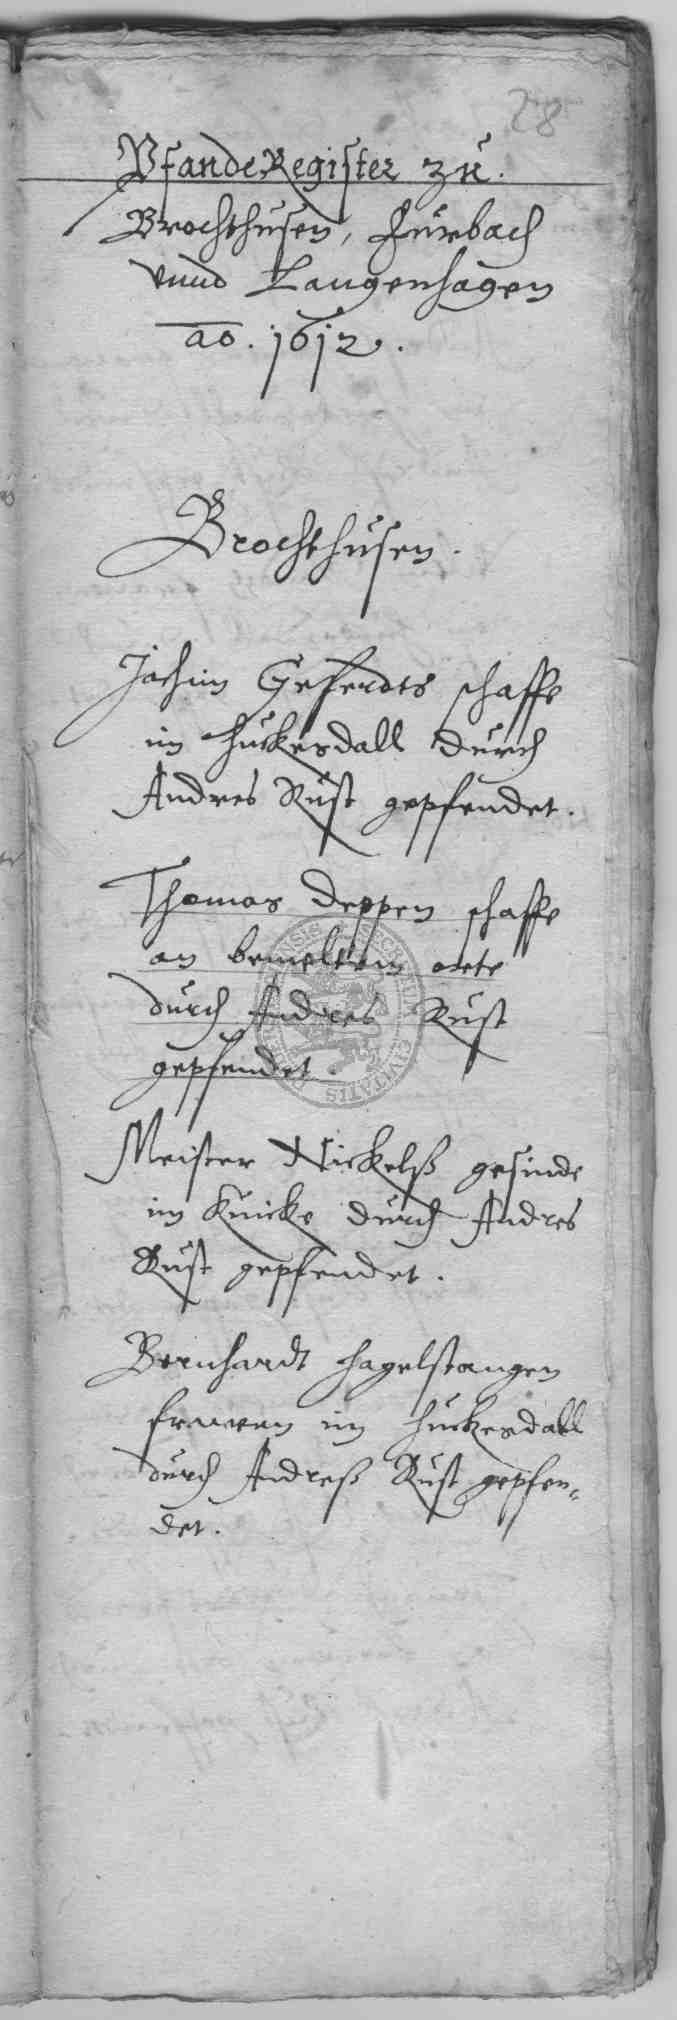 28
PfandeRegister zu.
Brochthusen, Furbach
vnnd Langenhagen
ao. 1612.
Brochthusen.
Jochim Geferdts schaffe
im huckesdall durch
Andres Rust gepfendet.
Thomas Deppen schaffe
an bemeltem orte
durch Andres Rust
gepfendet.
Meister Nickelß gesinde
im Knicke durch Andres
Rust gepfendet.
Bernhardt hagelstangen
frawen im huckesdall
durch Andreß Rust gepfen„
det.